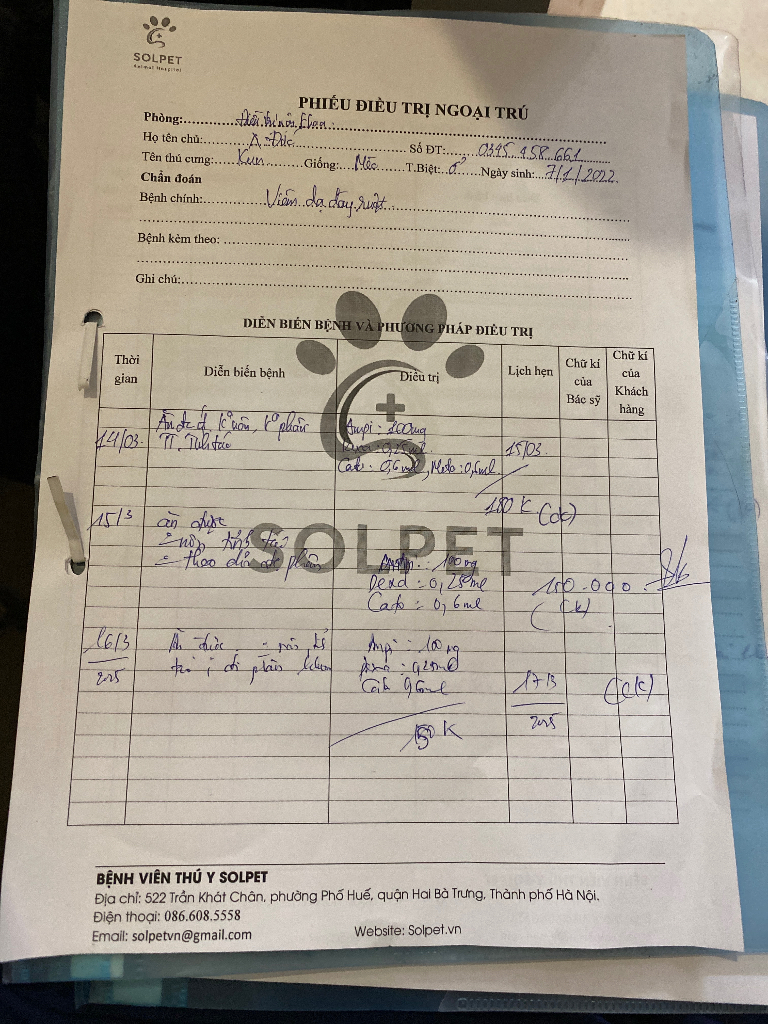 SOLPET
Animal Hospital
PHIẾU ĐIỀU TRỊ NGOẠI TRÚ
Phòng:
Họ tên chủ: A. Đức Số ĐT: 0345 158 661
Tên thú cưng: Kun Giống: Mèo T.Biệt: ♂ Ngày sinh: 7/1/2022
Chẩn đoán
Bệnh chính: Viêm dạ dày ruột
Bệnh kèm theo:
Ghi chú:
DIỄN BIẾN BỆNH VÀ PHƯƠNG PHÁP ĐIỀU TRỊ
Thời gian Diễn biến bệnh Điều trị Lịch hẹn Chữ kí của Bác sỹ Chữ kí của Khách hàng
14/03 Ăn k° nôn, k° phân Ampi: 200mg
TT. Tỉnh táo : 0,25ml 15/03
Cato: 0,6ml, Meto: 0,5ml
180K (ck)
15/3 ăn được
tỉnh táo
- theo dõi phân : 100mg
Dexa: 0,25ml 150.000
Cato: 0,6ml (ck)
16/3 Ăn được Ampi: 100mg
2025 đi phân : 0,25ml
Cato 0,6ml 17/3 (ck)
2025
150K
SOLPET
BỆNH VIỆN THÚ Y SOLPET
Địa chỉ: 522 Trần Khát Chân, phường Phố Huế, quận Hai Bà Trưng, Thành phố Hà Nội.
Điện thoại: 086.608.5558
Email: solpetvn@gmail.com Website: Solpet.vn